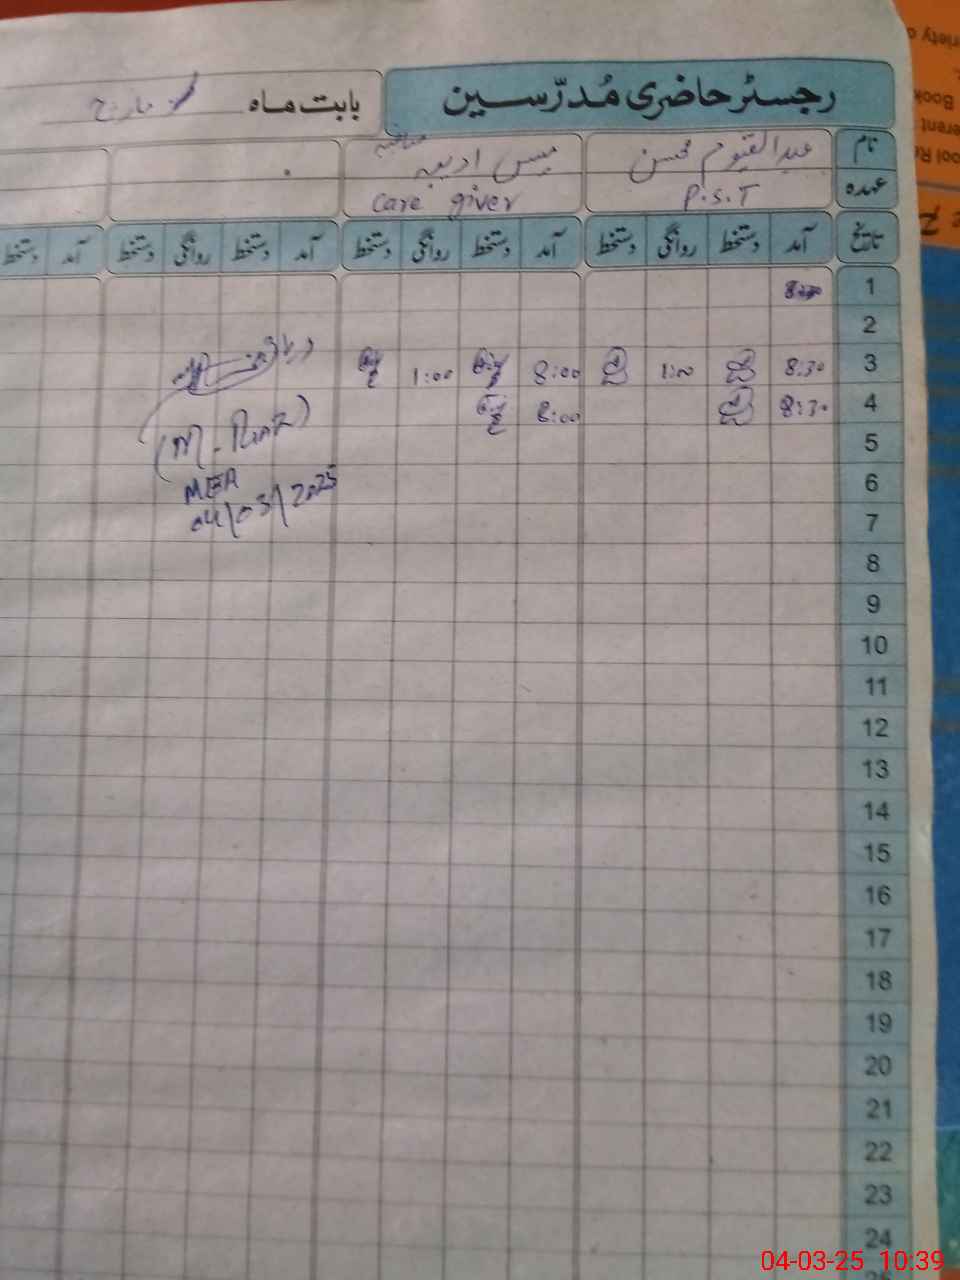 رجسٹر حاضری مُدرّسین
بابت ماہ مارچ
نام عبدالقیوم محسن میس ادیبہ
عہدہ P.S.T Care giver
تاریخ آمد دستخط روانگی دستخط آمد دستخط روانگی دستخط آمد دستخط روانگی دستخط آمد دستخط
1 8:30
2
3 8:30 1:00 8:00 1:00
4 8:30 8:00
5
6
7
8
9
10
11
12
13
14
15
16
17
18
19
20
21
22
23
24
MEA
04/03/2025
riety o
Book
erent
ool Re
04-03-25 10:39